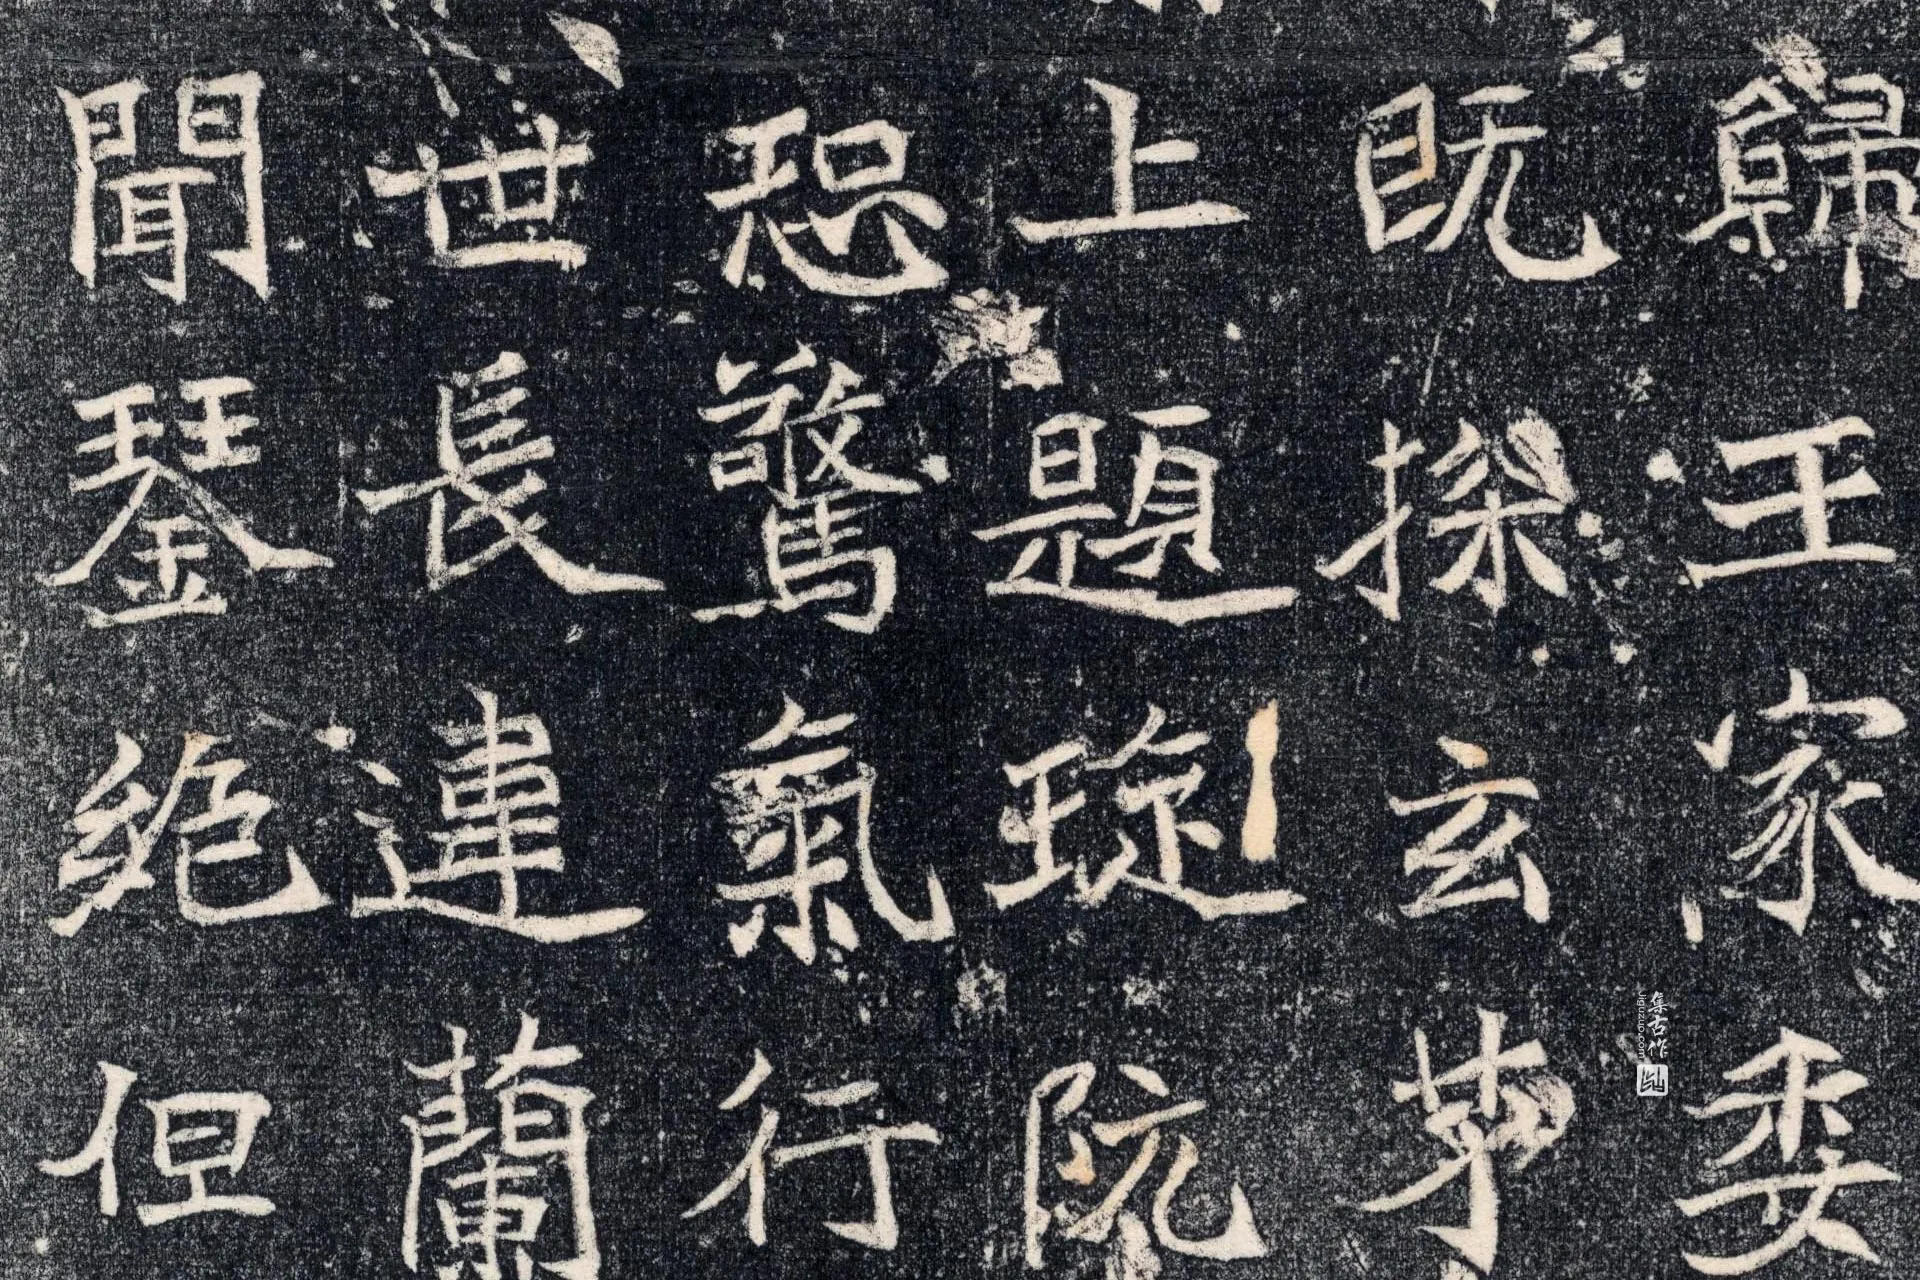 歸王家委
既探玄
上題琁阮
恐驚氣行
世長違蘭
聞琴絕但
集古作
jiguzuo.com